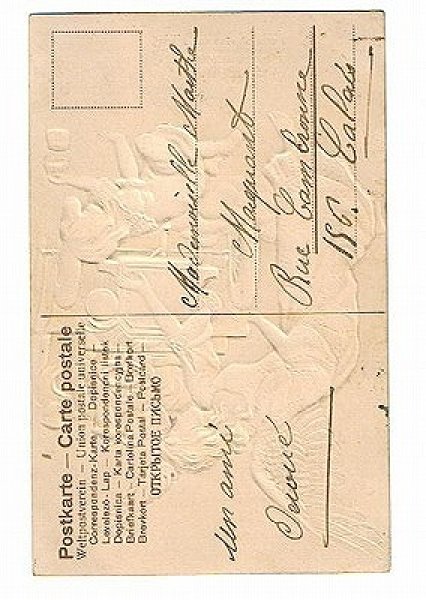 Postkarte — Carte postale
Weltpostverein — Union postale universelle
Correspondenz-Karte — Dopisnice —
Levelező-Lap — Korespondenční lístek
Dopisnica — Karta korespondencyjna —
Briefkaart — Cartolina Postale — Brevkort
Brevkort — Tarjeta Postal — Postcard —
ОТКРЫТОЕ ПИСЬМО
un ami
Dévoué
Mademoiselle Marthe
Maquaert
Rue Cambronne
156. Calais